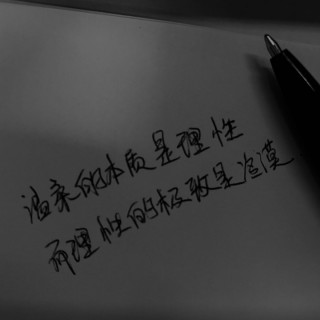 温柔的本质是理性
而理性的极致是冷漠